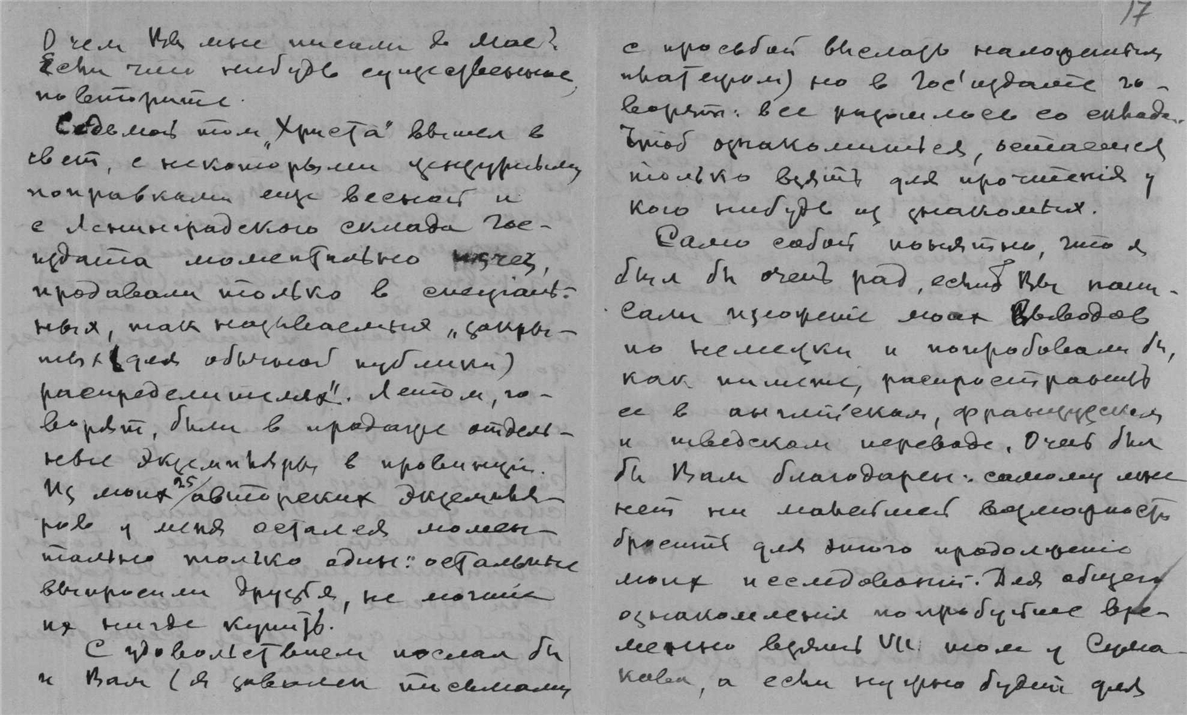 О чем Вы мне писали в мае?
Если что нибудь существенное,
повторите.
Седьмой том „Христа“ вышел в
свет, с некоторыми цензурными
поправками еще весной и
с Ленинградского склада Гос-
издата моментально исчез,
продавали только в специаль-
ных, так называемых „закры-
тых (для обычной публики)
распределителях“. Летом, го-
ворят, были в продаже отдель-
ные экземпляры в провинции.
Из моих 25 авторских экземпля-
ров у меня остался момен-
тально только один: остальные
выпросили друзья, не могшие
их нигде купить.
С удовольствием послал бы
и Вам (я завален письмами
17
с просьбой выслать наложенным
платежом) но в Гос'издате го-
ворят: все разошлось со склада.
Чтоб ознакомиться, остается
только взять для прочтения у
кого нибудь из знакомых.
Само собой понятно, что я
был бы очень рад, если б Вы напи-
сали изложение моих выводов
по немецки и попробовали бы,
как пишете, распространить
ее в английском, французском
и шведском переводе. Очень был
бы Вам благодарен: самому мне
нет ни малейшей возможности
бросить для этого продолжение
моих исследований. Для общего
ознакомления попробуйте вре-
менно взять VII том у Сума-
кова, а если нужно будет для